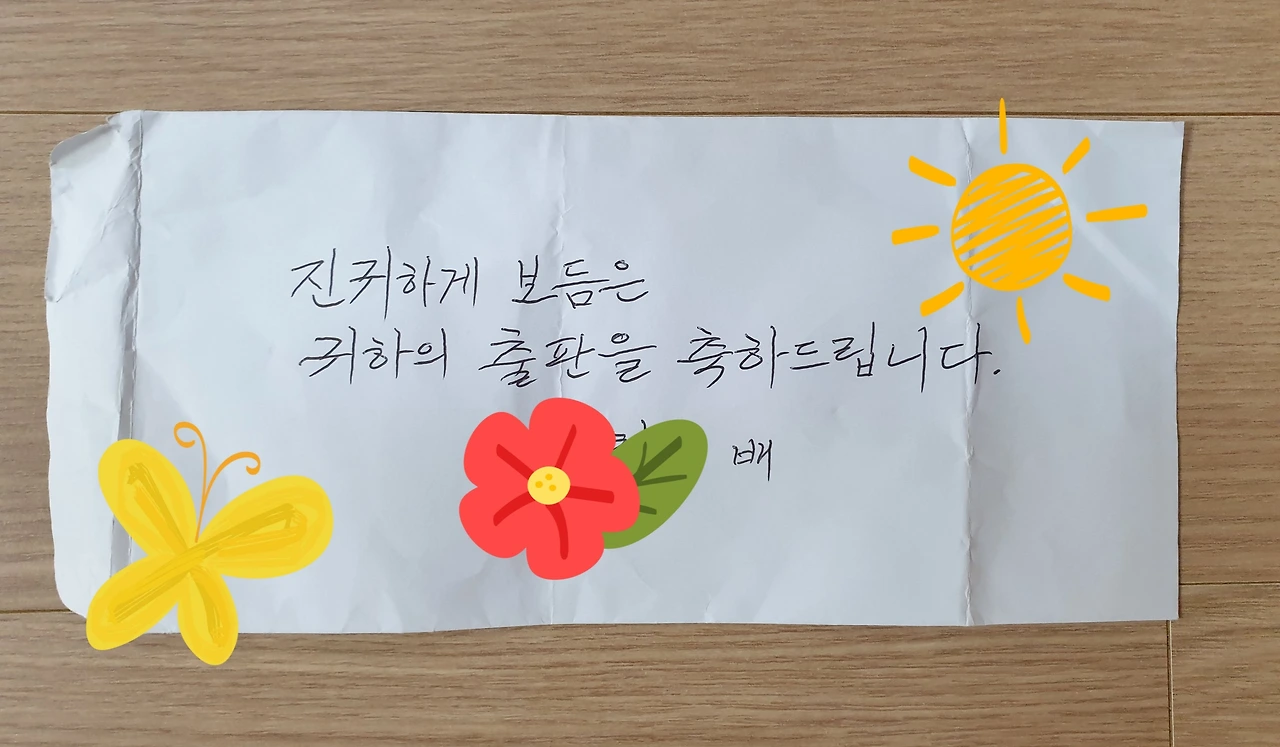 진귀하게 보듬은
귀하의 출판을 축하드립니다.
배